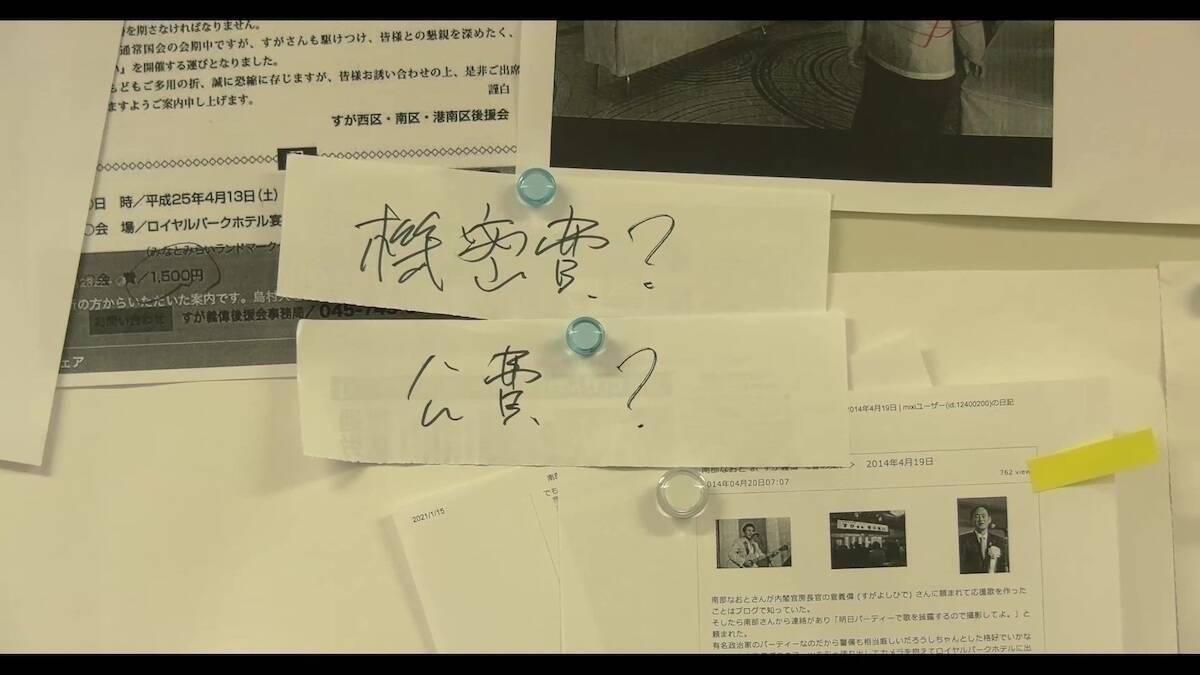 を期さなければなりません。
通常国会の会期中ですが、すがさんも駆けつけ、皆様との懇親を深めたく、
い』を開催する運びとなりました。
もどもご多用の折、誠に恐縮に存じますが、皆様お誘い合わせの上、是非ご出席
ますようご案内申し上げます。
謹白
すが西区・南区・港南区後援会
日 時/平成25年4月13日(土)
会 場/ロイヤルパークホテル宴
(みなとみらいランドマーク
会 費/1,500円
の方からいただいた案内です。島村大
お問い合わせ すが義偉後援会事務局/045-743
ェア
機密費?
公費?
2021/1/15
南部
でも
2014年4月19日 | mixiユーザー(id:12400200)の日記
> 2014年4月19日
762 view
014年04月20日07:07
南部なおとさんが内閣官房長官の菅義偉 (すがよしひで) さんに頼まれて応援歌を作った
ことはブログで知っていた。
そしたら南部さんから連絡があり「明日パーティーで歌を披露するので撮影してよ。」と
頼まれた。
有名政治家のパーティーなのだから警備も相当厳しいだろうしちゃんとした格好でいかな
カメラを抱えてロイヤルパークホテルに出